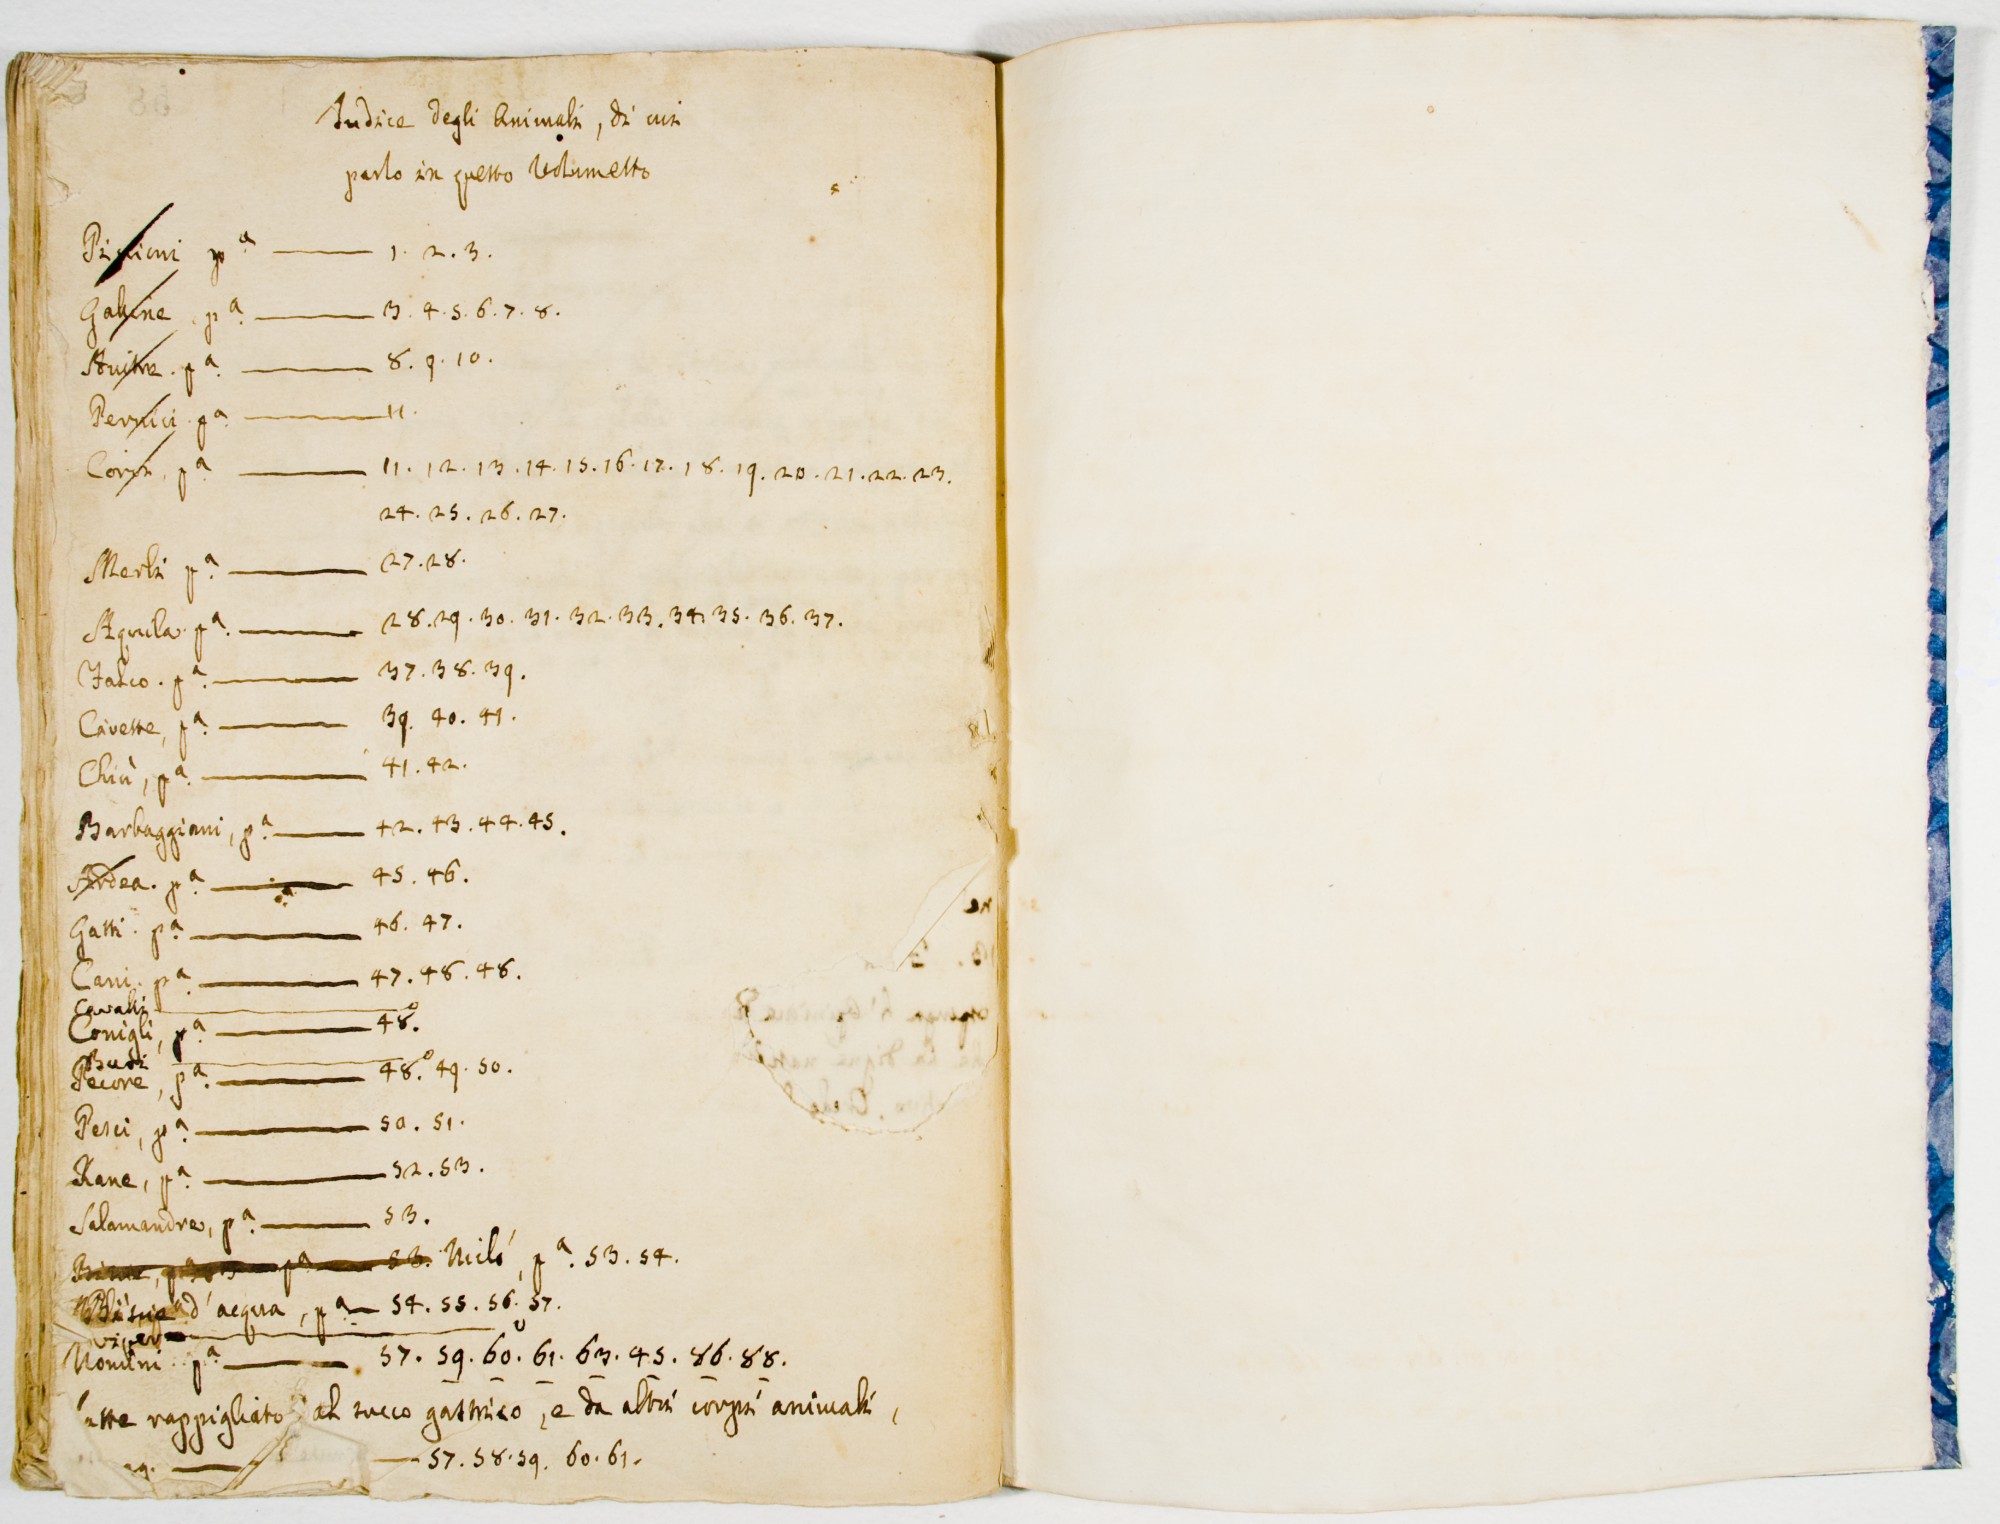 Indice degli Animali, di cui
parlo in questo Volumetto
Piccioni pª 1. 2. 3.
Galline, pª. 3. 4. 5. 6. 7. 8.
Anitre. pª. 8. 9. 10.
Pernici. pª. 11.
Corvi, pª. 11. 12. 13. 14. 15. 16. 17. 18. 19. 20. 21. 22. 23.
24. 25. 26. 27.
Merli pª. 27. 28.
Aquila. pª. 28. 29. 30. 31. 32. 33. 34. 35. 36. 37.
Falco. pª. 37. 38. 39.
Civette, pª. 39. 40. 41.
Chiù, pª. 41. 42.
Barbaggiani, pª. 42. 43. 44. 45.
Ardea. pª. 45. 46.
Gatti. pª. 46. 47.
Cani. pª. 47. 48. 48.
Cavalli
Conigli, pª. 48.
Buoi
Pecore, pª. 48. 49. 50.
Pesci, pª. 50. 51.
Rane, pª. 52. 53.
Salamandre, pª. 53.
Biscie, pª. 53. Milò, pª. 53. 54.
Biscie d'acqua, pª. 54. 55. 56. 57.
Uomini. pª. 57. 59. 60. 61. 63. 45. 86. 88.
atte rappigliato al succo gastrico, e da altri corpi animali,
ag. 57. 58. 59. 60. 61.